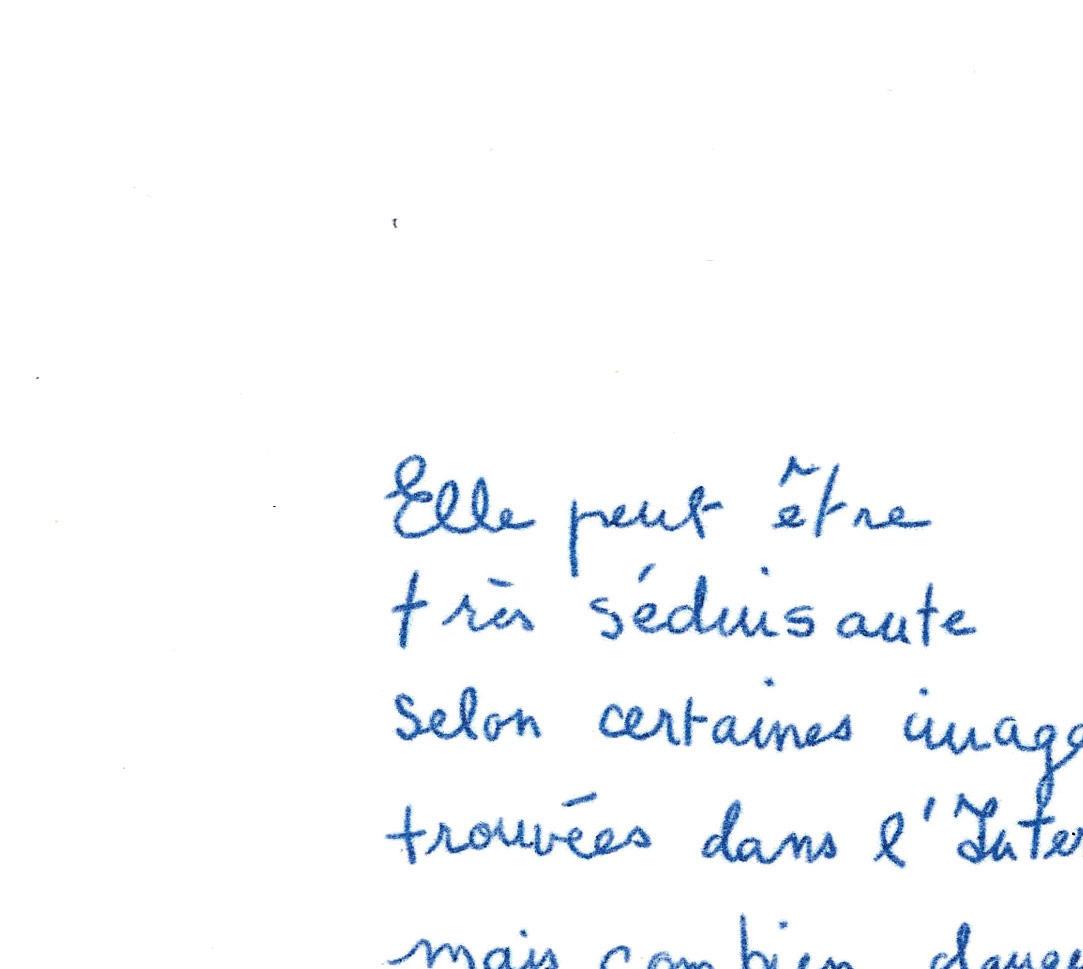 Elle peut être
très séduisante
selon certaines image
trouvées dans l'Inter
mais combien dange